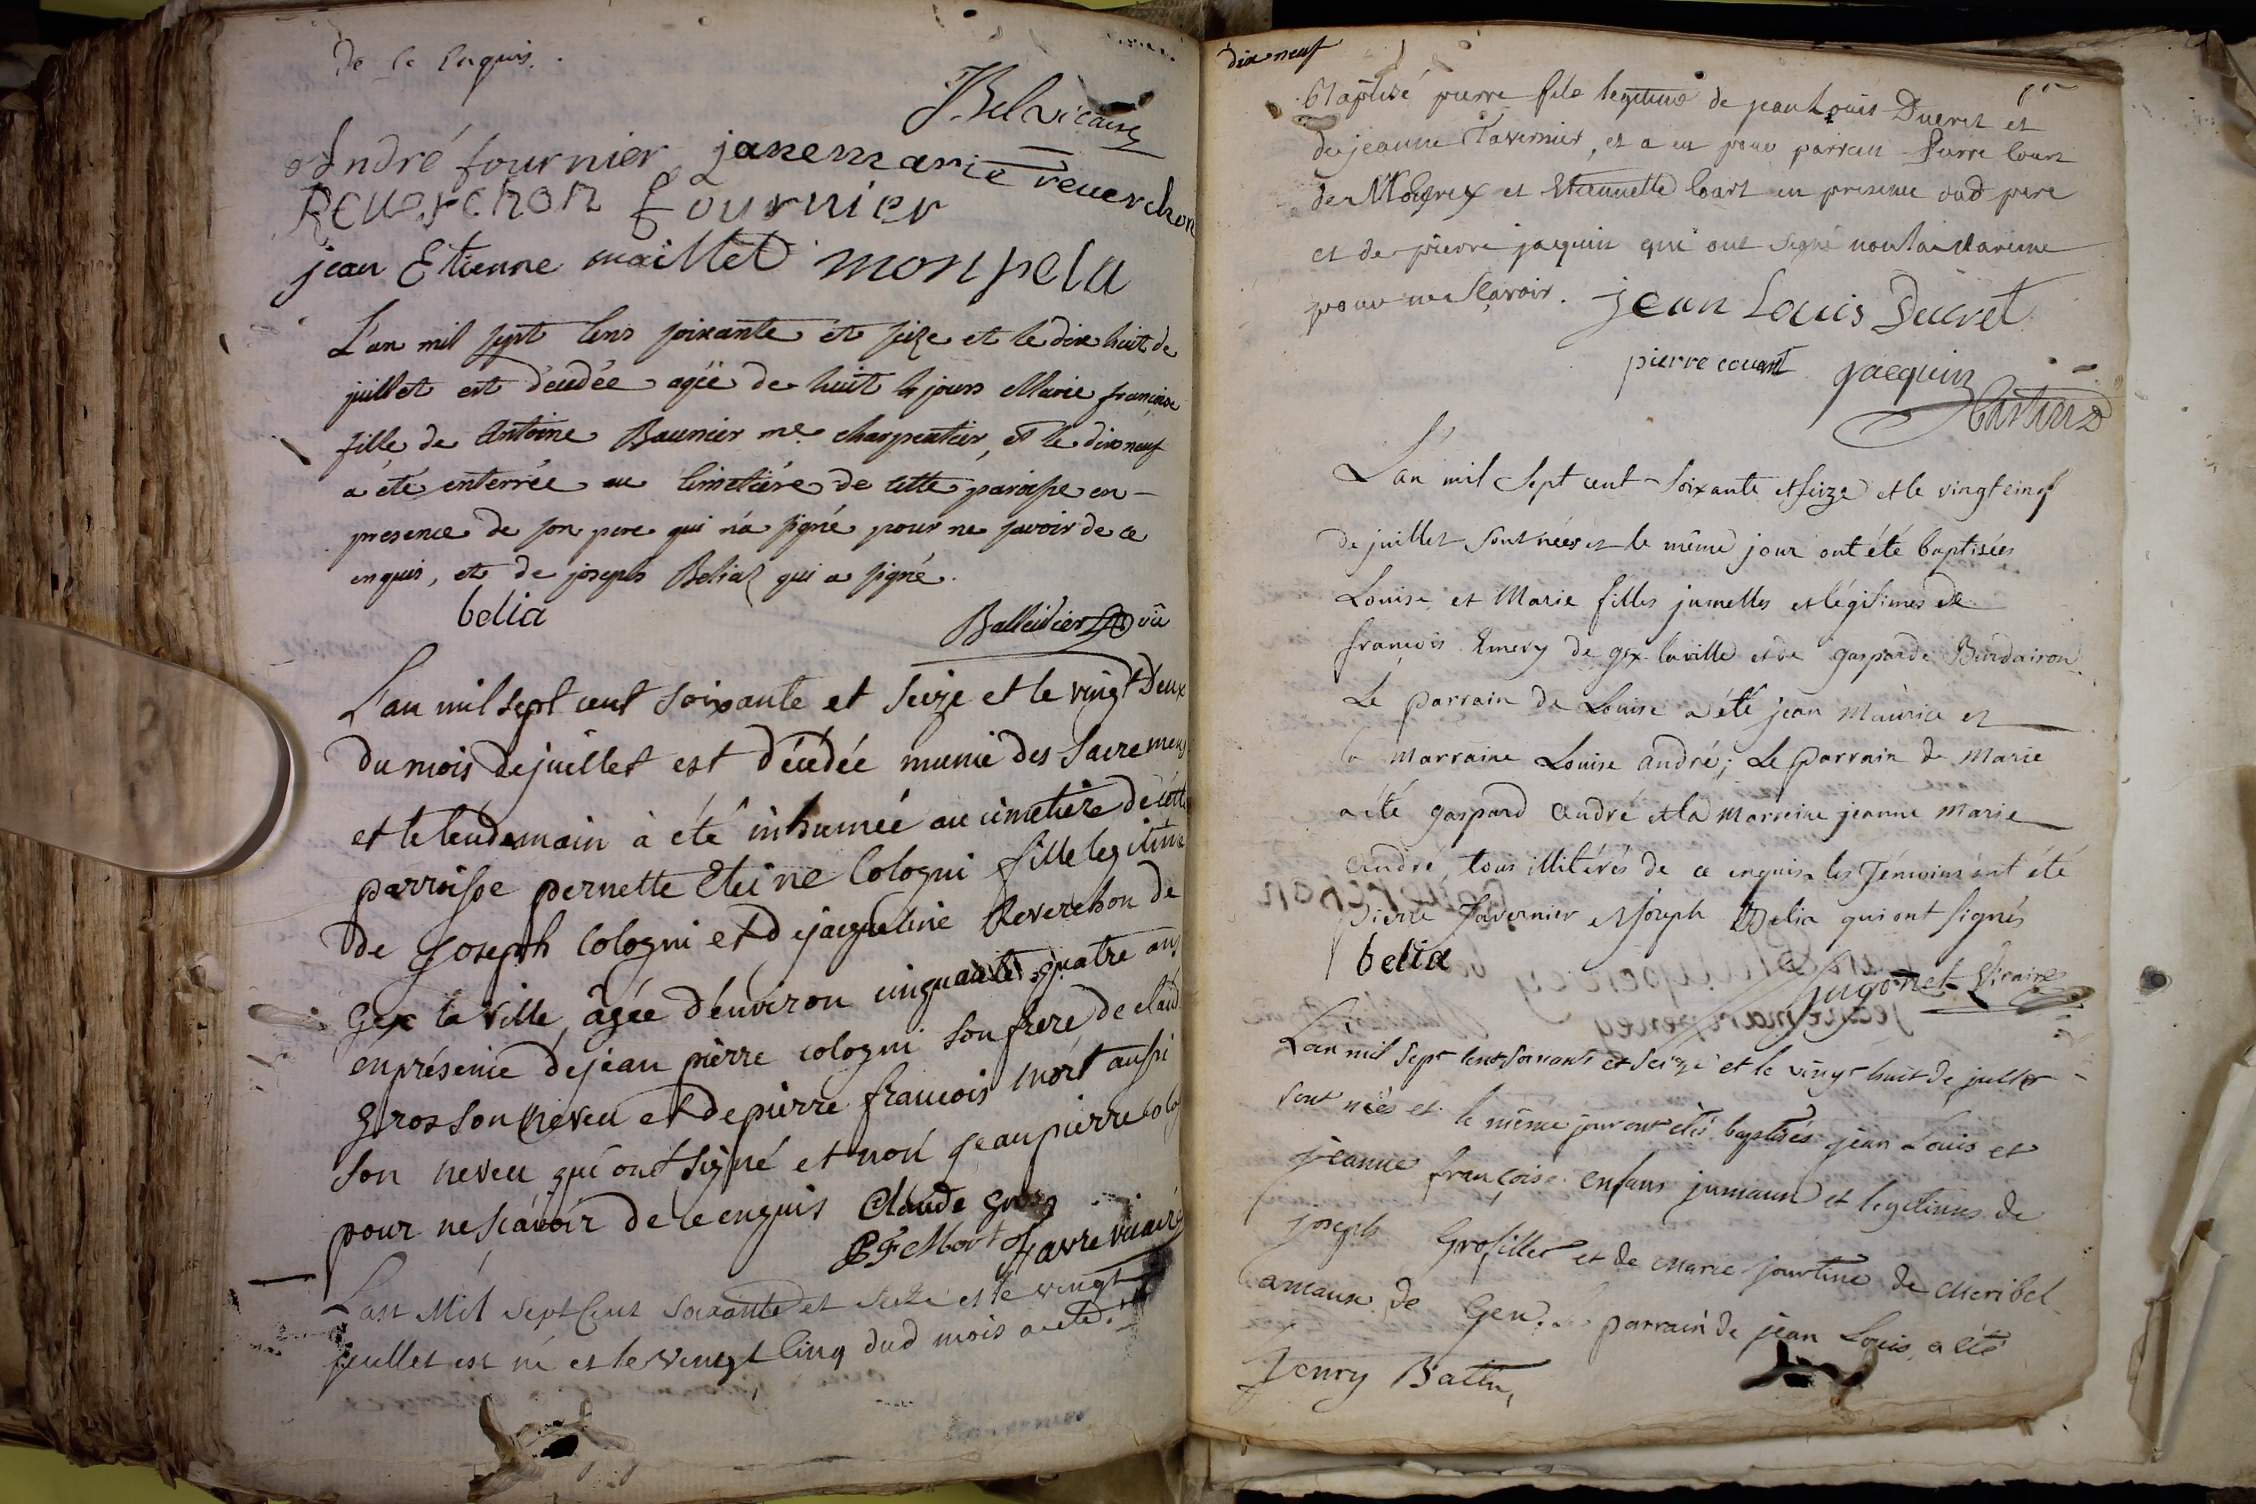 de ce enquis.
J. Bel vicaire
André fournier janemarie reverchon
Reverchon fournier
jean Etienne maillet monpela
L'an mil sept cens soixante et seize et le dix huit de
juillet est décédée agée de huit jours Marie françoise
fille de Antoine Baunier me charpentier, et le dix neuf
a été enterrée au cimetiére de cette paroisse en
presence de son pere qui n'a signé pour ne savoir de ce
enquis, et de joseph Beliaz qui a signé.
belia
Balleidier
L'an mil sept cent soixante et seize et le vingt Deux
du mois de juillet est décédée munie des sacremens
et le lendemain à été inhumée au cimetière de cette
parroisse pernette Cologni fille legitime
de Joseph Cologni et de jacqueline Reverchon de
Gex la ville, âgée d'environ cinquante quatre ans
en présence de jean pierre cologni son frere de claud
Gros son neveu et de pierre francois Mort aussi
son neveu qui ont signé et non jean pierre colog
pour ne scavoir de ce enquis Claude gros
P F Mort favre vicaire
L'an Mil Sept Cent soixante et seize et le vingt
juillet est né et le vingt cinq dud mois a été
dix neuf
Baptisé pierre fils legitime de jean Louis Ducret et
de jeanne Tavernier, et a eu pour parrain Pierre
de et en presence dud pere
et de pierre jacquin qui ont signé non la Mareine
pour ne sçavoir. jean Louis Ducret
pierre jacquin
L'an mil Sept cent soixante et seize et le vingt cinq
de juillet sont nées et le même jour ont été baptisées
Louise et Marie filles jumelles et légitimes de
françois Emery de gex la ville et de gasparde
Le parrain de Louise a été jean Maurice et
la marraine Louise andré; Le parrain de Marie
a été gaspard andré et la marreine jeanne Marie
andré, tous illitérés de ce enquis. les Témoins ont été
pierre Tavernier et Joseph Belia qui ont signés
belia
Hugonet Vicaire
L'an mil sept cent soixante et seize et le vingt huit de juillet
sont nées et le même jour ont étés baptisés jean Louis et
jeanne françoise enfans jumaux et legitimes de
joseph Grosfillet et de Marie de
de Gex. le parrain de jean Louis a été
henry